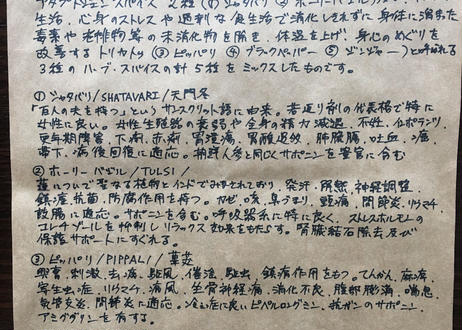 生活、心身のストレスや過剰な食生活で消化しきれずに身体に溜まった
毒素や老廃物等の未消化物を除き、体温を上げ、身心のめぐりを
改善するトリカトゥ(③ピッパリ ④ブラックペパー ⑤ジンジャー)と呼ばれる
3種のハーブ・スパイスの計5種をミックスしたものです。
①シャタバリ/SHATAVARI/天門冬
「百人の夫を持つ」というサンスクリット語に由来。若返り剤の代表格で特に
女性に良い。女性生殖器の衰弱や全身の精力減退、不妊、インポテンツ、
更年期障害、下痢、赤痢、胃潰瘍、胃酸過多、肺膿瘍、吐血、
帯下、病後回復に適応。朝鮮人参と同じくサポニンを豊富に含む
②ホーリーバジル/TULSI/
蓮につづいで聖なる植物とインドでみなされており、発汗、解熱、神経調整、
鎮痙、抗菌、防腐作用を持つ。カゼ、咳、鼻づまり、頭痛、関節炎、リウマチ、
腹脹に適応。サポニンを含む。呼吸器系に特に良く、ストレスホルモンの
コレチゾールを抑制しリラックス効果をもたらす。腎臓結石除去及び
保護サポートにすぐれる。
③ピッパリ/PIPPALI/蓽茇
興奮、刺激、去痰、駆風、催淫、駆虫、鎮痛作用をもつ。てんかん、麻痺、
寄生虫症、リウマチ、痛風、坐骨神経痛、消化不良、腹部膨満、喘息、
気管支炎、関節炎に適応。冷え症に良いピペルロングミン、抗ガンのサポニン、
を有する。